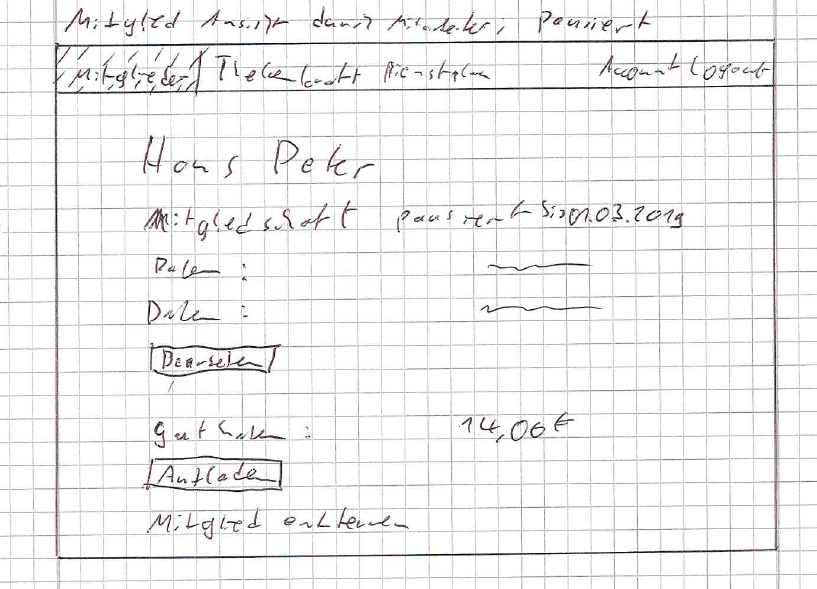 Mitglied Ansicht durch Mitarbeiter, Pausiert
Mitglieder Thekenkraft Dienstplan Account Logout
Hans Peter
Mitgliedschaft pausiert bis 01.03.2019
Daten :
Daten :
Bearbeiten
Guthaben : 14,06€
Aufladen
Mitglied entfernen